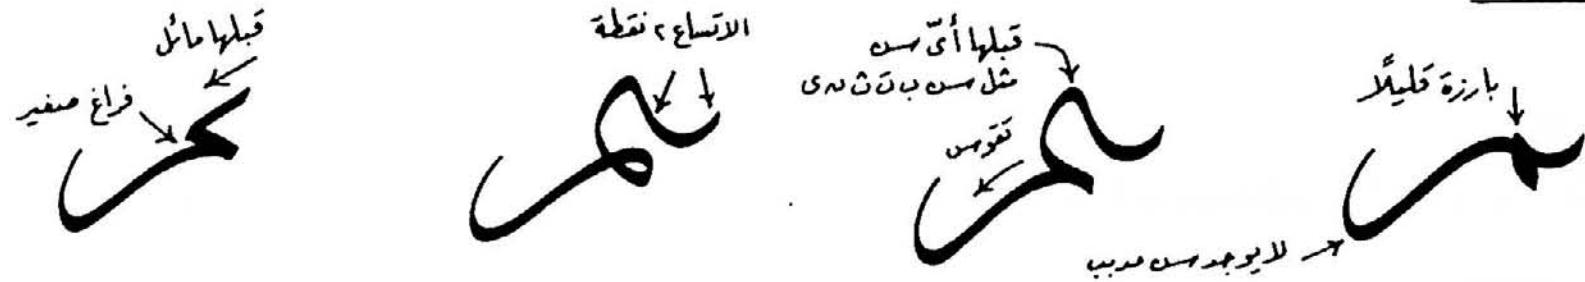 بارزة قليلًا
لا يوجد سن مدبب
قبلها أىّ سن
مثل سن ب ت ث ن ى
تقوس
الاتساع ٢ نقطة
قبلها مائل
فراغ صغير